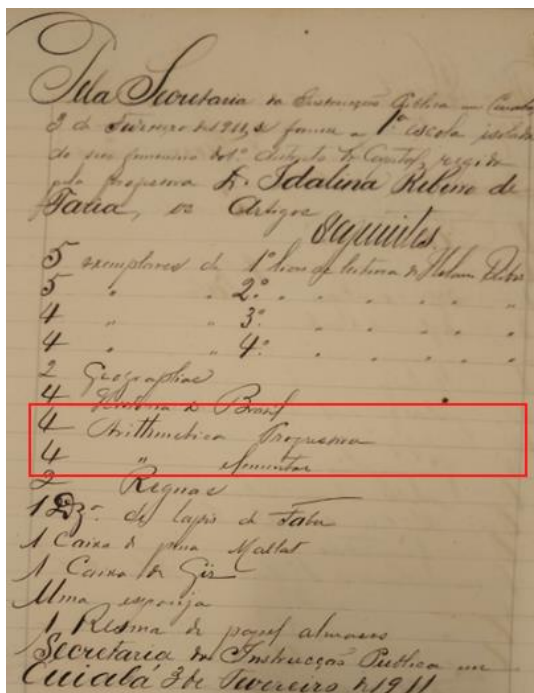 Pela Secretaria da Instrucção Publica em Cuiabá,
3 de Fevereiro de 1911, se fornece a 1ª escola isolada
do sexo feminino do 1º districto da Capital, regida
pela professora D. Idalina Ribeiro de
Faria, os Artigos
seguintes
5 exemplares do 1º livro de leitura de
5 " " 2º " " " " "
4 " " 3º " " " " "
4 " " 4º " " " " "
2 Geographias
4 Historia do Brasil
4 Arithmetica Progressiva
4 " elementar
2 Regoas
1 Dzª de lapis de Faber
1 Caixa de penna Mallat
1 Caixa de Giz
Uma esponja
1 Resma de papel almasso
Secretaria da Instrucção Publica em
Cuiabá 3 de Fevereiro de 1911